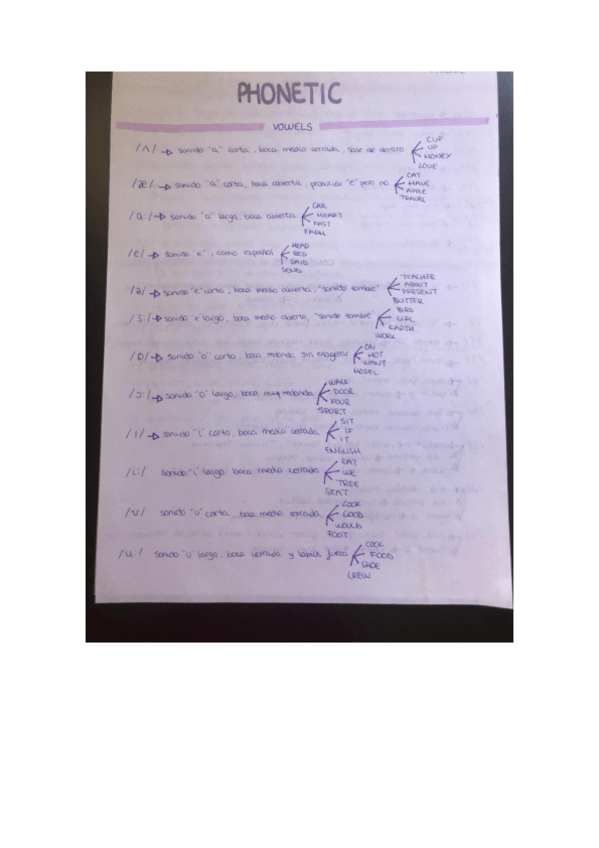 PHONETIC
VOWELS
/ʌ/ → sonido "a" corta, boca medio cerrada, sale de dentro
CUP
UP
MONEY
LOVE
/æ/ → sonido "a" corta, boca abierta, pronunciar "e" pero no
CAT
HAVE
APPLE
TRAVEL
/ɑ:/ → sonido "a" larga, boca abierta
CAR
HEART
FAST
FARM
/e/ → sonido "e", como español
HEAD
BED
SAID
SEND
/ə/ → sonido "e" corto, boca medio abierta, "sonido zombie"
TEACHER
ABOUT
PRESENT
BUTTER
/ɜ:/ → sonido e largo, boca medio abierta, "sonido zombie"
BIRD
GIRL
EARTH
WORK
/ɒ/ → sonido "o" corto, boca redonda sin exagerar
ON
HOT
WANT
MODEL
/ɔ:/ → sonido "o" largo, boca muy redonda
WALK
DOOR
FOUR
SPORT
/ɪ/ → sonido "i" corto, boca medio cerrada
SIT
IF
IT
ENGLISH
/i:/ sonido "i" larga, boca medio cerrada
EAT
WE
TREE
SEAT
/ʊ/ sonido "u" corta, boca medio cerrada
LOOK
GOOD
WOULD
FOOT
/u:/ sonido "u" largo, boca cerrada y labios fuera
COOL
FOOD
SHOE
CREW